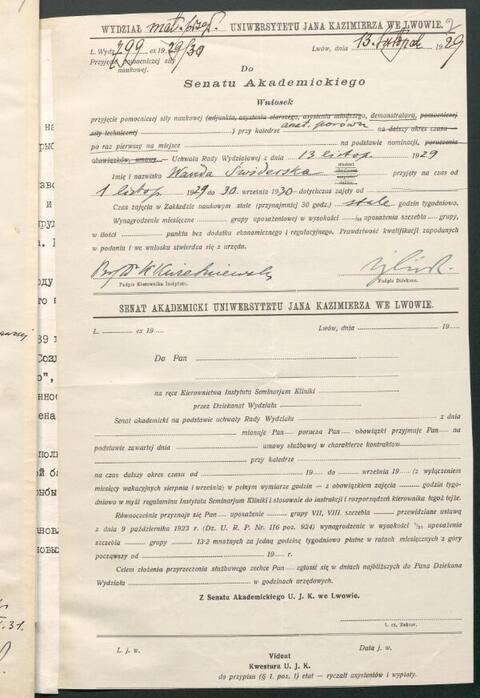 WYDZIAŁ mat.-przyr. UNIWERSYTETU JANA KAZIMIERZA WE LWOWIE. 2
L. Wydz. 799 ex 1929/30 Lwów, dnia 13. listopad 1929
Przyjęcie pomocniczej siły
naukowej.
Do
Senatu Akademickiego
Wniosek
przyjęcie pomocniczej siły naukowej (adjunkta, asystenta starszego, asystenta młodszego, demonstratora, pomocniczej
siły technicznej) przy katedrze anat. porówn. na dalszy okres czasu
po raz pierwszy na miejsce na podstawie nominacji, poruczenia
obowiązków, umowy. Uchwała Rady Wydziałowej z dnia 13 listop. 1929
Imię i nazwisko Wanda przyjęty na czas od
1 listop. 1929 do 30. września 1930 dotychczas zajęty od
Czas zajęcia w Zakładzie naukowym stale (przynajmniej 30 godz.) stale godzin tygodniowo.
Wynagrodzenie miesięczne grupy uposażeniowej w wysokości uposażenia szczebla grupy,
w ilości punktu bez dodatku ekonomicznego i regulacyjnego. Prawdziwość kwalifikacji zapodanych
w podaniu i we wniosku stwierdza się z urzędu.
Prof Dr K Kwietniewski
Podpis Kierownika Instytutu. Podpis Dziekana.
SENAT AKADEMICKI UNIWERSYTETU JANA KAZIMIERZA WE LWOWIE.
L. ex 19 Lwów, dnia 19
Do Pan
na ręce Kierownictwa Instytutu Seminarjum Kliniki
przez Dziekanat Wydziału
Senat akademicki na podstawie uchwały Rady Wydziału z dnia
mianuje Pan porucza Pan obowiązki przyjmuje Pan na
podstawie zawartej dnia umowy służbowej w charakterze kontraktow
przy katedrze
na czas dalszy okres czasu od 19 do września 19 (z wyłączeniem
miesięcy wakacyjnych sierpnia i września) w pełnym wymiarze godzin – z obowiązkiem zajęcia godzin tygo-
dniowo w myśl regulaminu Instytutu Seminarjum Kliniki i stosownie do instrukcji i rozporządzeń kierownika tegoż tejże.
Równocześnie przyznaje się Pan uposażenie grupy VII, VIII. szczebla przewidziane ustawą
z dnia 9 października 1923 (Dz. U. R. P. Nr. 116 poz. 924) wynagrodzenie w wysokości uposażenia
szczebla grupy 13·2 mnożnych za jedną godzinę tygodniowo płatne w ratach miesięcznych z góry
począwszy od 19 r.
Celem złożenia przyrzeczenia służbowego zechce Pan zgłosić się w dniach najbliższych do Pana Dziekana
Wydziału w godzinach urzędowych.
Z Senatu Akademickiego U. J. K. we Lwowie.
t. cz. Rektor.
L. j. w. Data j. w.
Videat
Kwestura U. J. K.
do przypisu (§ 1. poz. 1) etat — ryczałt asystentów i wypłaty.